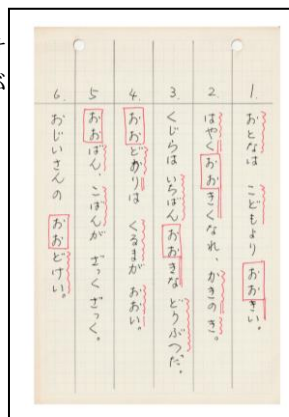 1. おとなは こどもより おおきい。
2. はやく おおきくなれ、かきのき。
3. くじらは いちばん おおきな どうぶつだ。
4. おおどおりは くるまが おおい。
5 おおばん、こばんが ざっくざっく。
6. おじいさんの おおどけい。